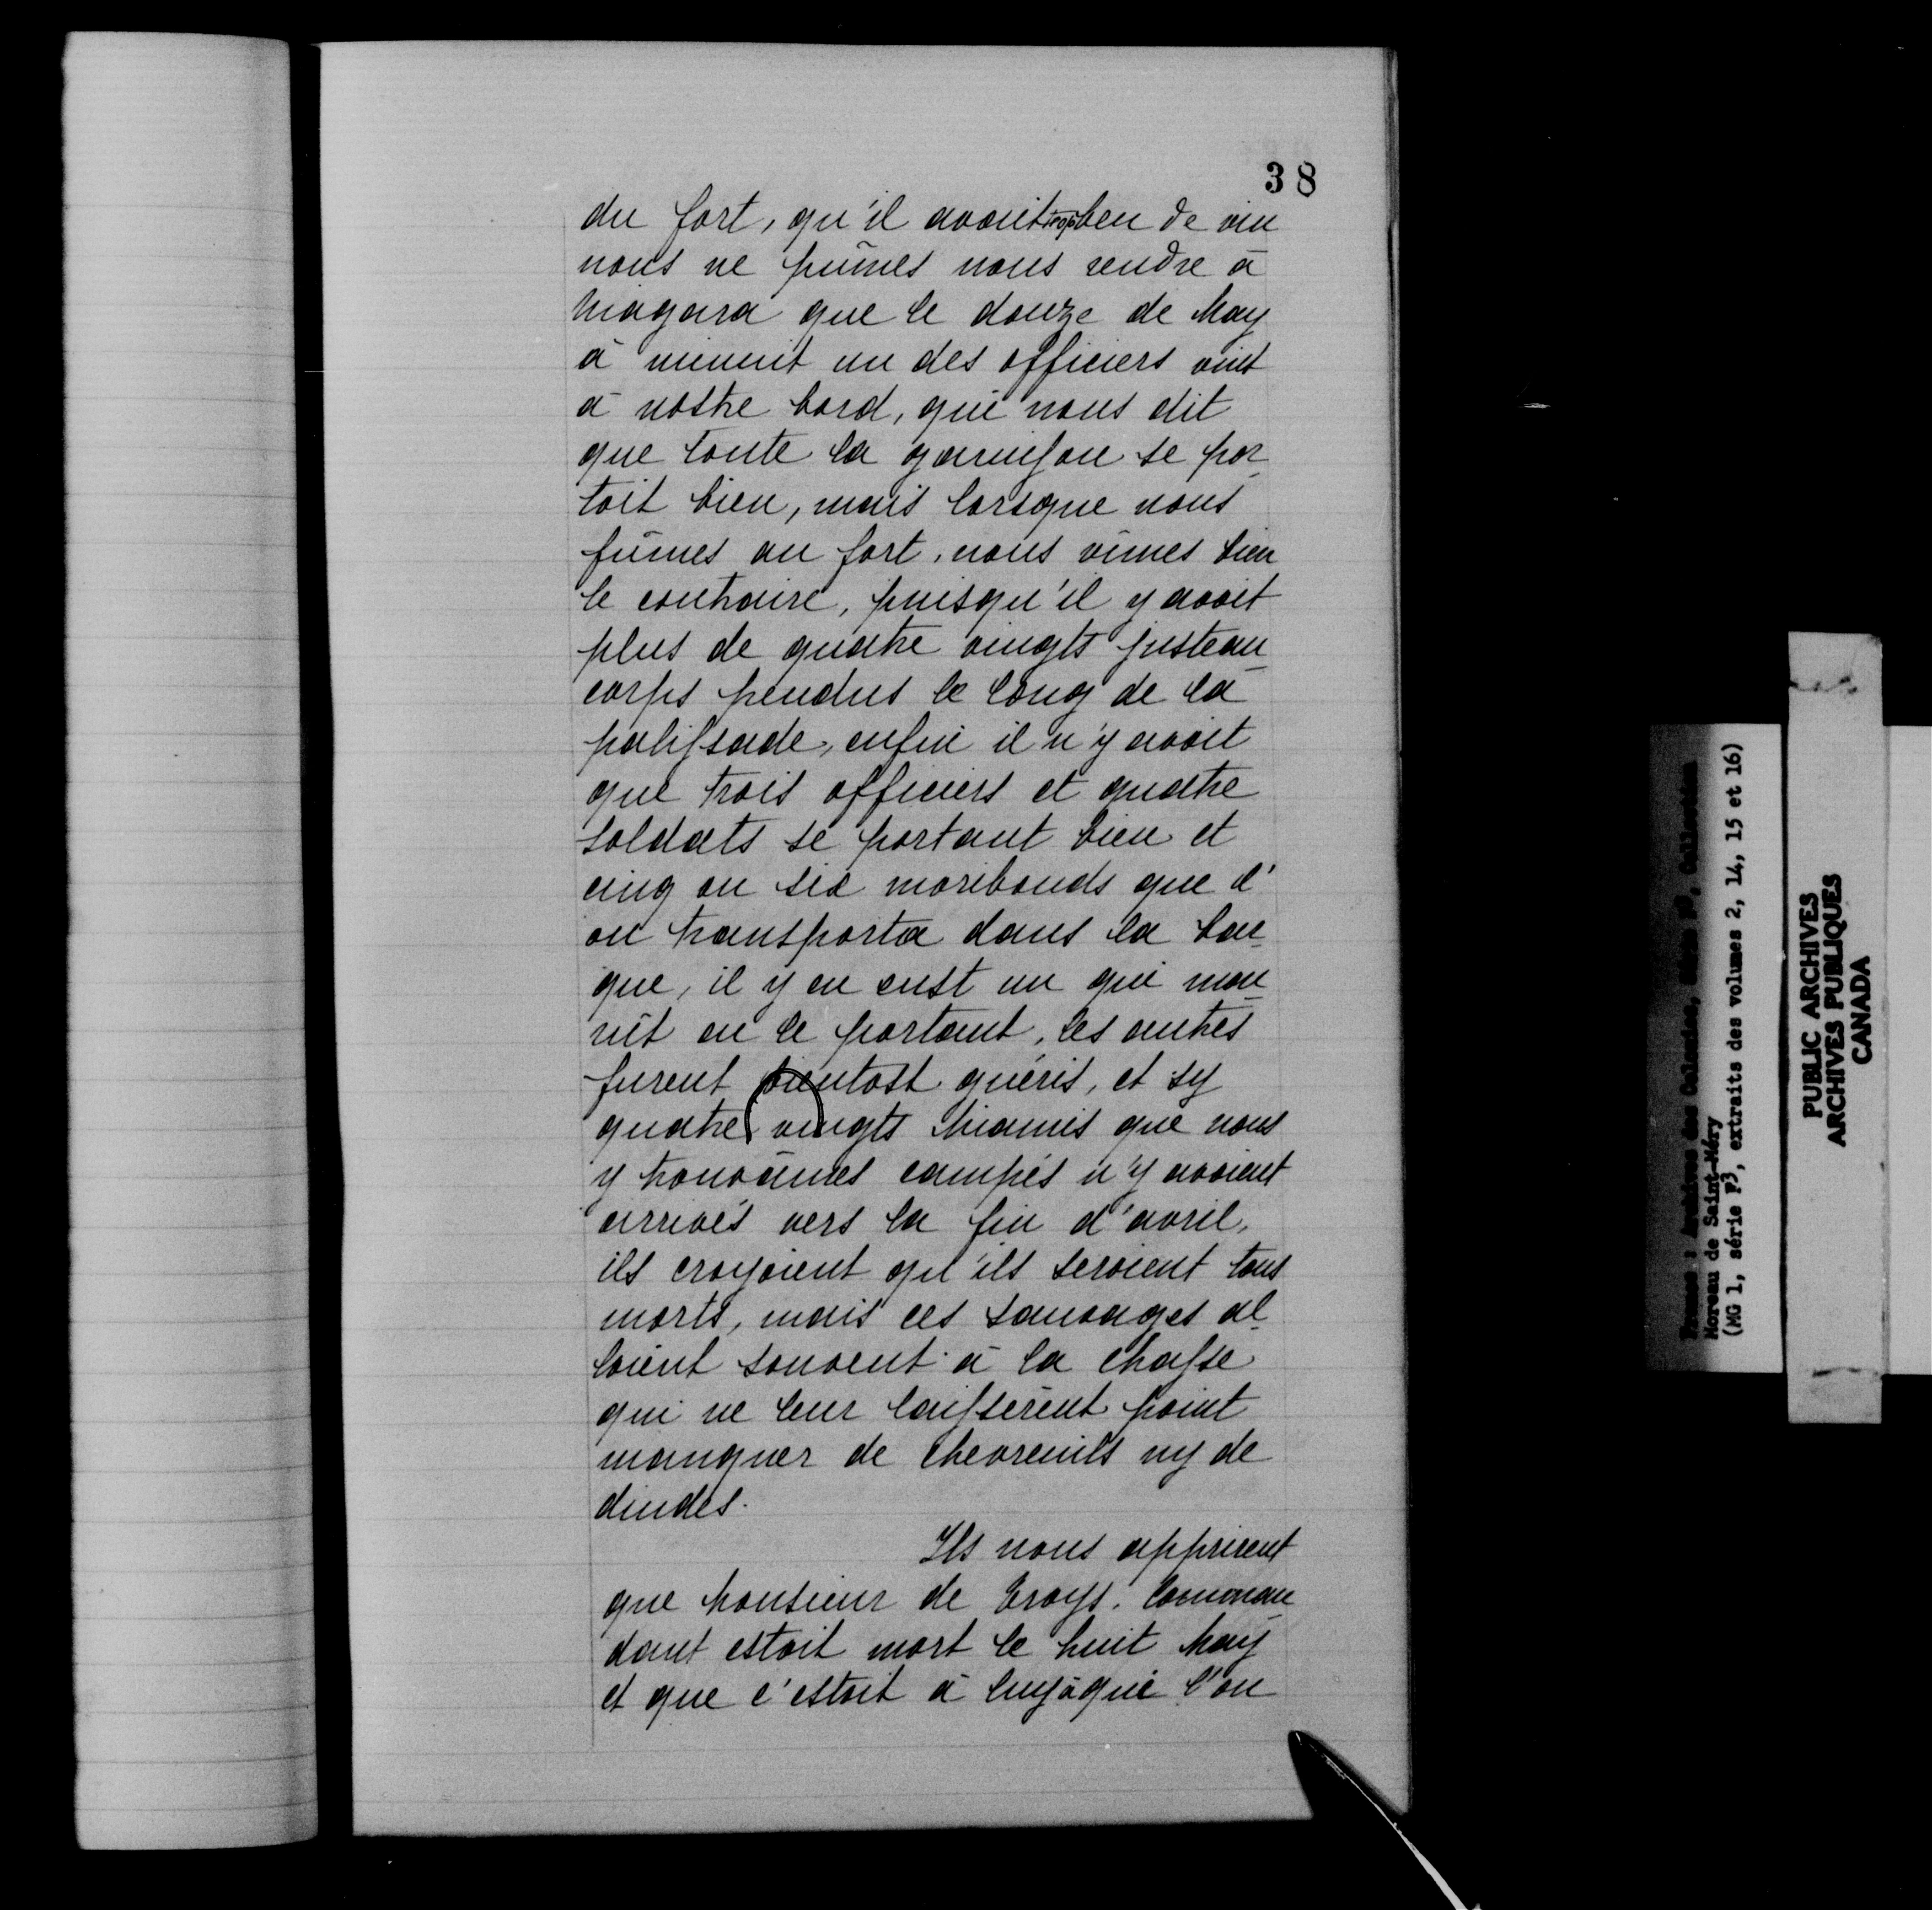 38
du fort, qu'il avoit trop beu de vin
nous ne pûmes nous rendre à
Niagara que le douze de May
à minuit un des officiers vint
à nostre bord, qui nous dit
que toute la garnison se por
toit bien, mais lorsque nous
fûmes au fort, nous vîmes bien
le contraire, puisqu'il y avoit
plus de quatre vingts justeau
corps pendus le long de la
palissade, enfin il n'y avoit
que trois officiers et quatre
soldats se portant bien et
cinq ou six moribonds que l'
on transporta dans la bar
que, il y en eust un qui mou
rut en le portant, les autres
furent bientost guéris, et sy
quatre vingts Miamis que nous
y trouvâmes campés n'y avoient
arrivés vers la fin d'avril,
ils croyoient qu'ils seroient tous
morts, mais ces sauvages al
loient souvent à la chasse
qui ne leur laissèrent point
manquer de chevreuils ny de
dindes.
Ils nous apprirent
que Monsieur de Troys. Comman
dant estoit mort le huit May
et que c'estoit à luy à qui l'on
France : Archives des Colonies, série F3, Collection
Moreau de Saint-Méry
(MG 1, série F3, extraits des volumes 2, 14, 15 et 16)
PUBLIC ARCHIVES
ARCHIVES PUBLIQUES
CANADA